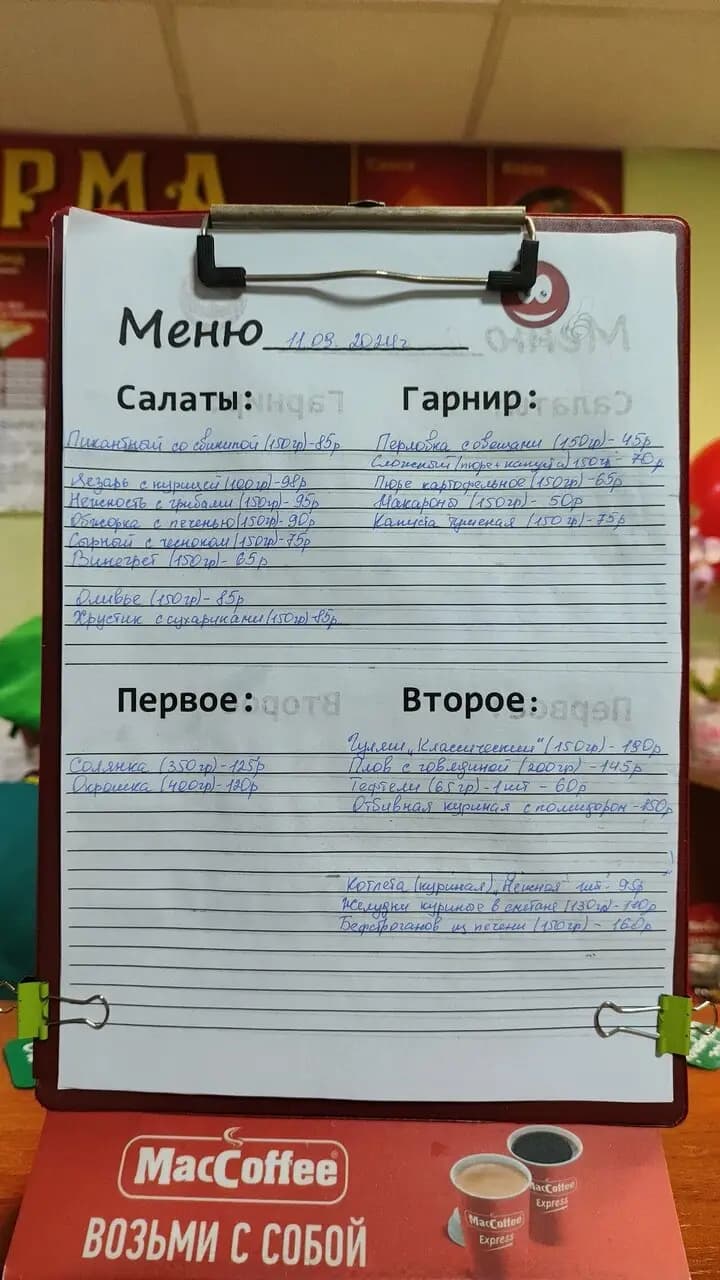 РМА
Меню 11.09.2024г
Салаты:
Пикантный со свининой (150гр)-85р
Цезарь с курицей (100гр)-98р
Нежность с грибами (150гр)-95р
Обжорка с печенью (150гр)-90р
Сырный с чесноком (150гр)-75р
Винегрет (150гр)- 65р
Оливье (150гр)- 85р
Хрустик с сухариками (150гр)-85р
Гарнир:
Перловка с овощами (150гр)- 45р
Сложный (пюре+капуста) 150гр- 70р
Пюре картофельное (150гр)-65р
Макароны (150гр)- 50р
Капуста тушеная (150гр)-75р
Первое:
Солянка (350гр)-125р
Окрошка (400гр)-120р
Второе:
Гуляш „Классический" (150гр)- 190р
Плов с говядиной (200гр) -145р
Тефтели (65гр)-1шт - 60р
Отбивная куриная с помидором -150р
Котлета (куриная) „Нежная" 1шт- 95р
Желудки куриные в сметане (130гр)-
Бефстроганов из печени (150гр) - 160р
MacCoffee
ВОЗЬМИ С СОБОЙ
MacCoffee
Express
MacCoffee
Express